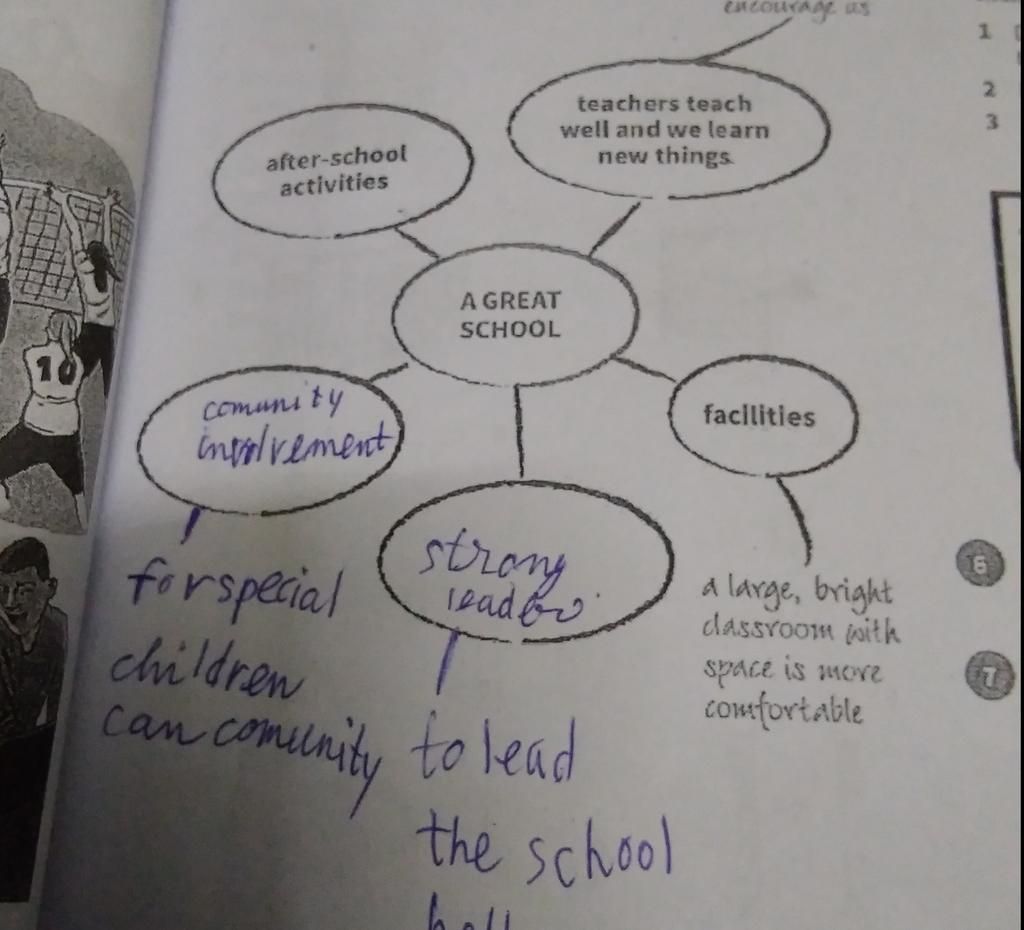 encourage us
1
2
3
teachers teach
well and we learn
new things.
after-school
activities
A GREAT
SCHOOL
10
comunity
involvement
facilities
strong
leader
6
7
a large, bright
classroom with
space is more
comfortable
for special
children
can comunity
to lead
the school